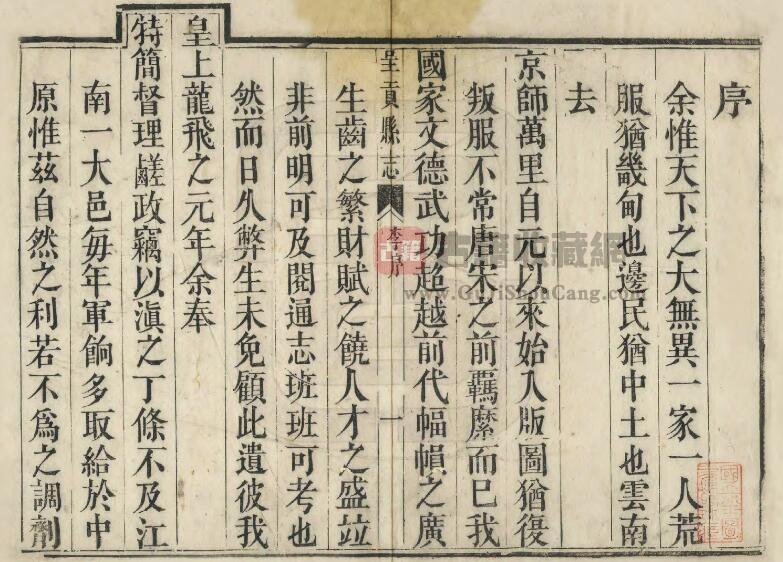 序
余惟天下之大無異一家一人荒
服猶畿甸也邊民猶中土也雲南
去
京師萬里自元以來始入版圖猶復
叛服不常唐宋之前羈縻而巳我
國家文德武功超越前代幅幀之廣
呈貢縣志
李序
一
生齒之繁財賦之饒人才之盛竝
非前明可及閱通志班班可考也
然而日久弊生未免顧此遺彼我
皇上龍飛之元年余奉
特簡督理鹺政竊以滇之丁條不及江
南一大邑每年軍餉多取給於中
原惟茲自然之利若不爲之調劑
古籍
古籍收藏網
www.GujiShouCang.com